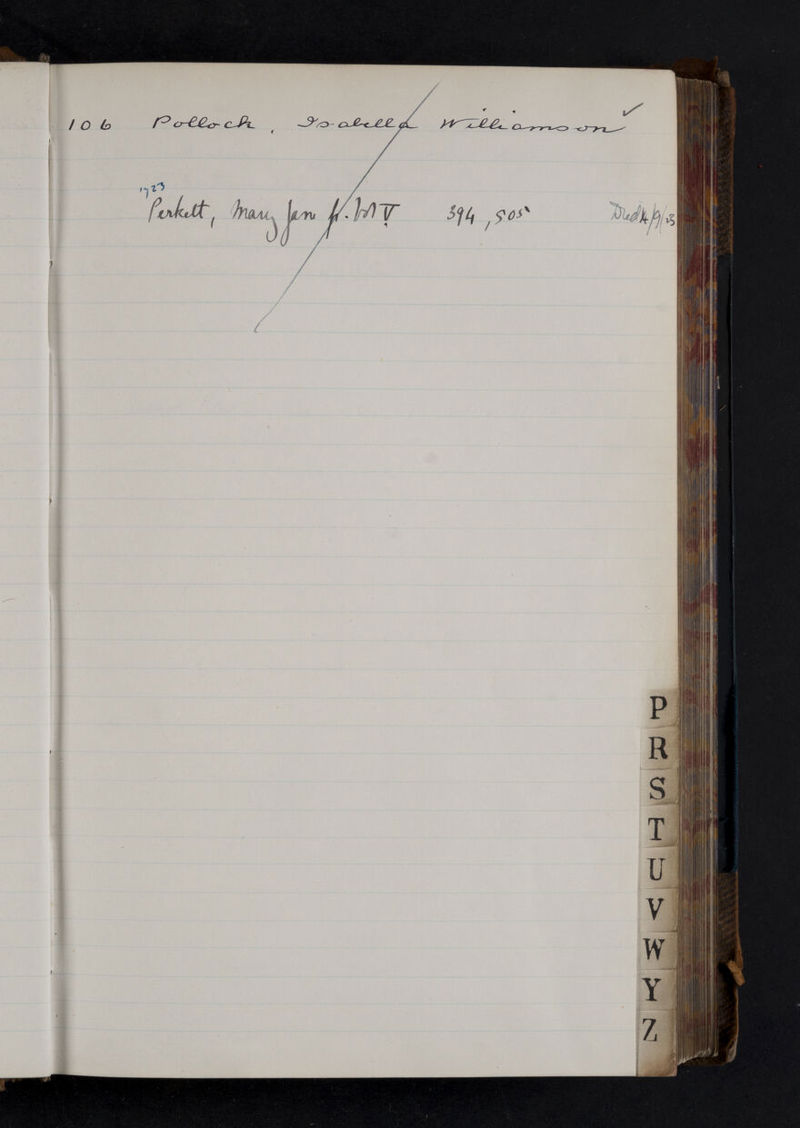 106 Pollock, Isabella Williamson ✓
1723
Perkett, Mary Jane V 394,505 Died 14/9/23
P
R
S
T
U
V
W
Y
Z